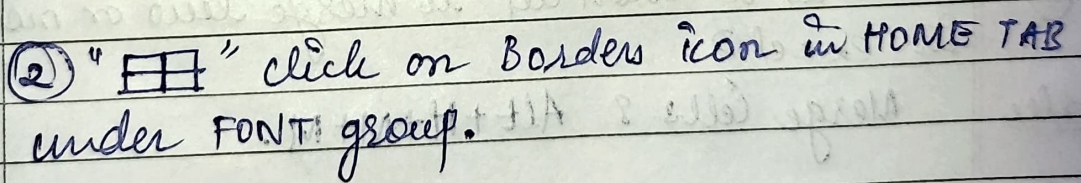 ② " " click on Borders icon in HOME TAB
under FONT group.